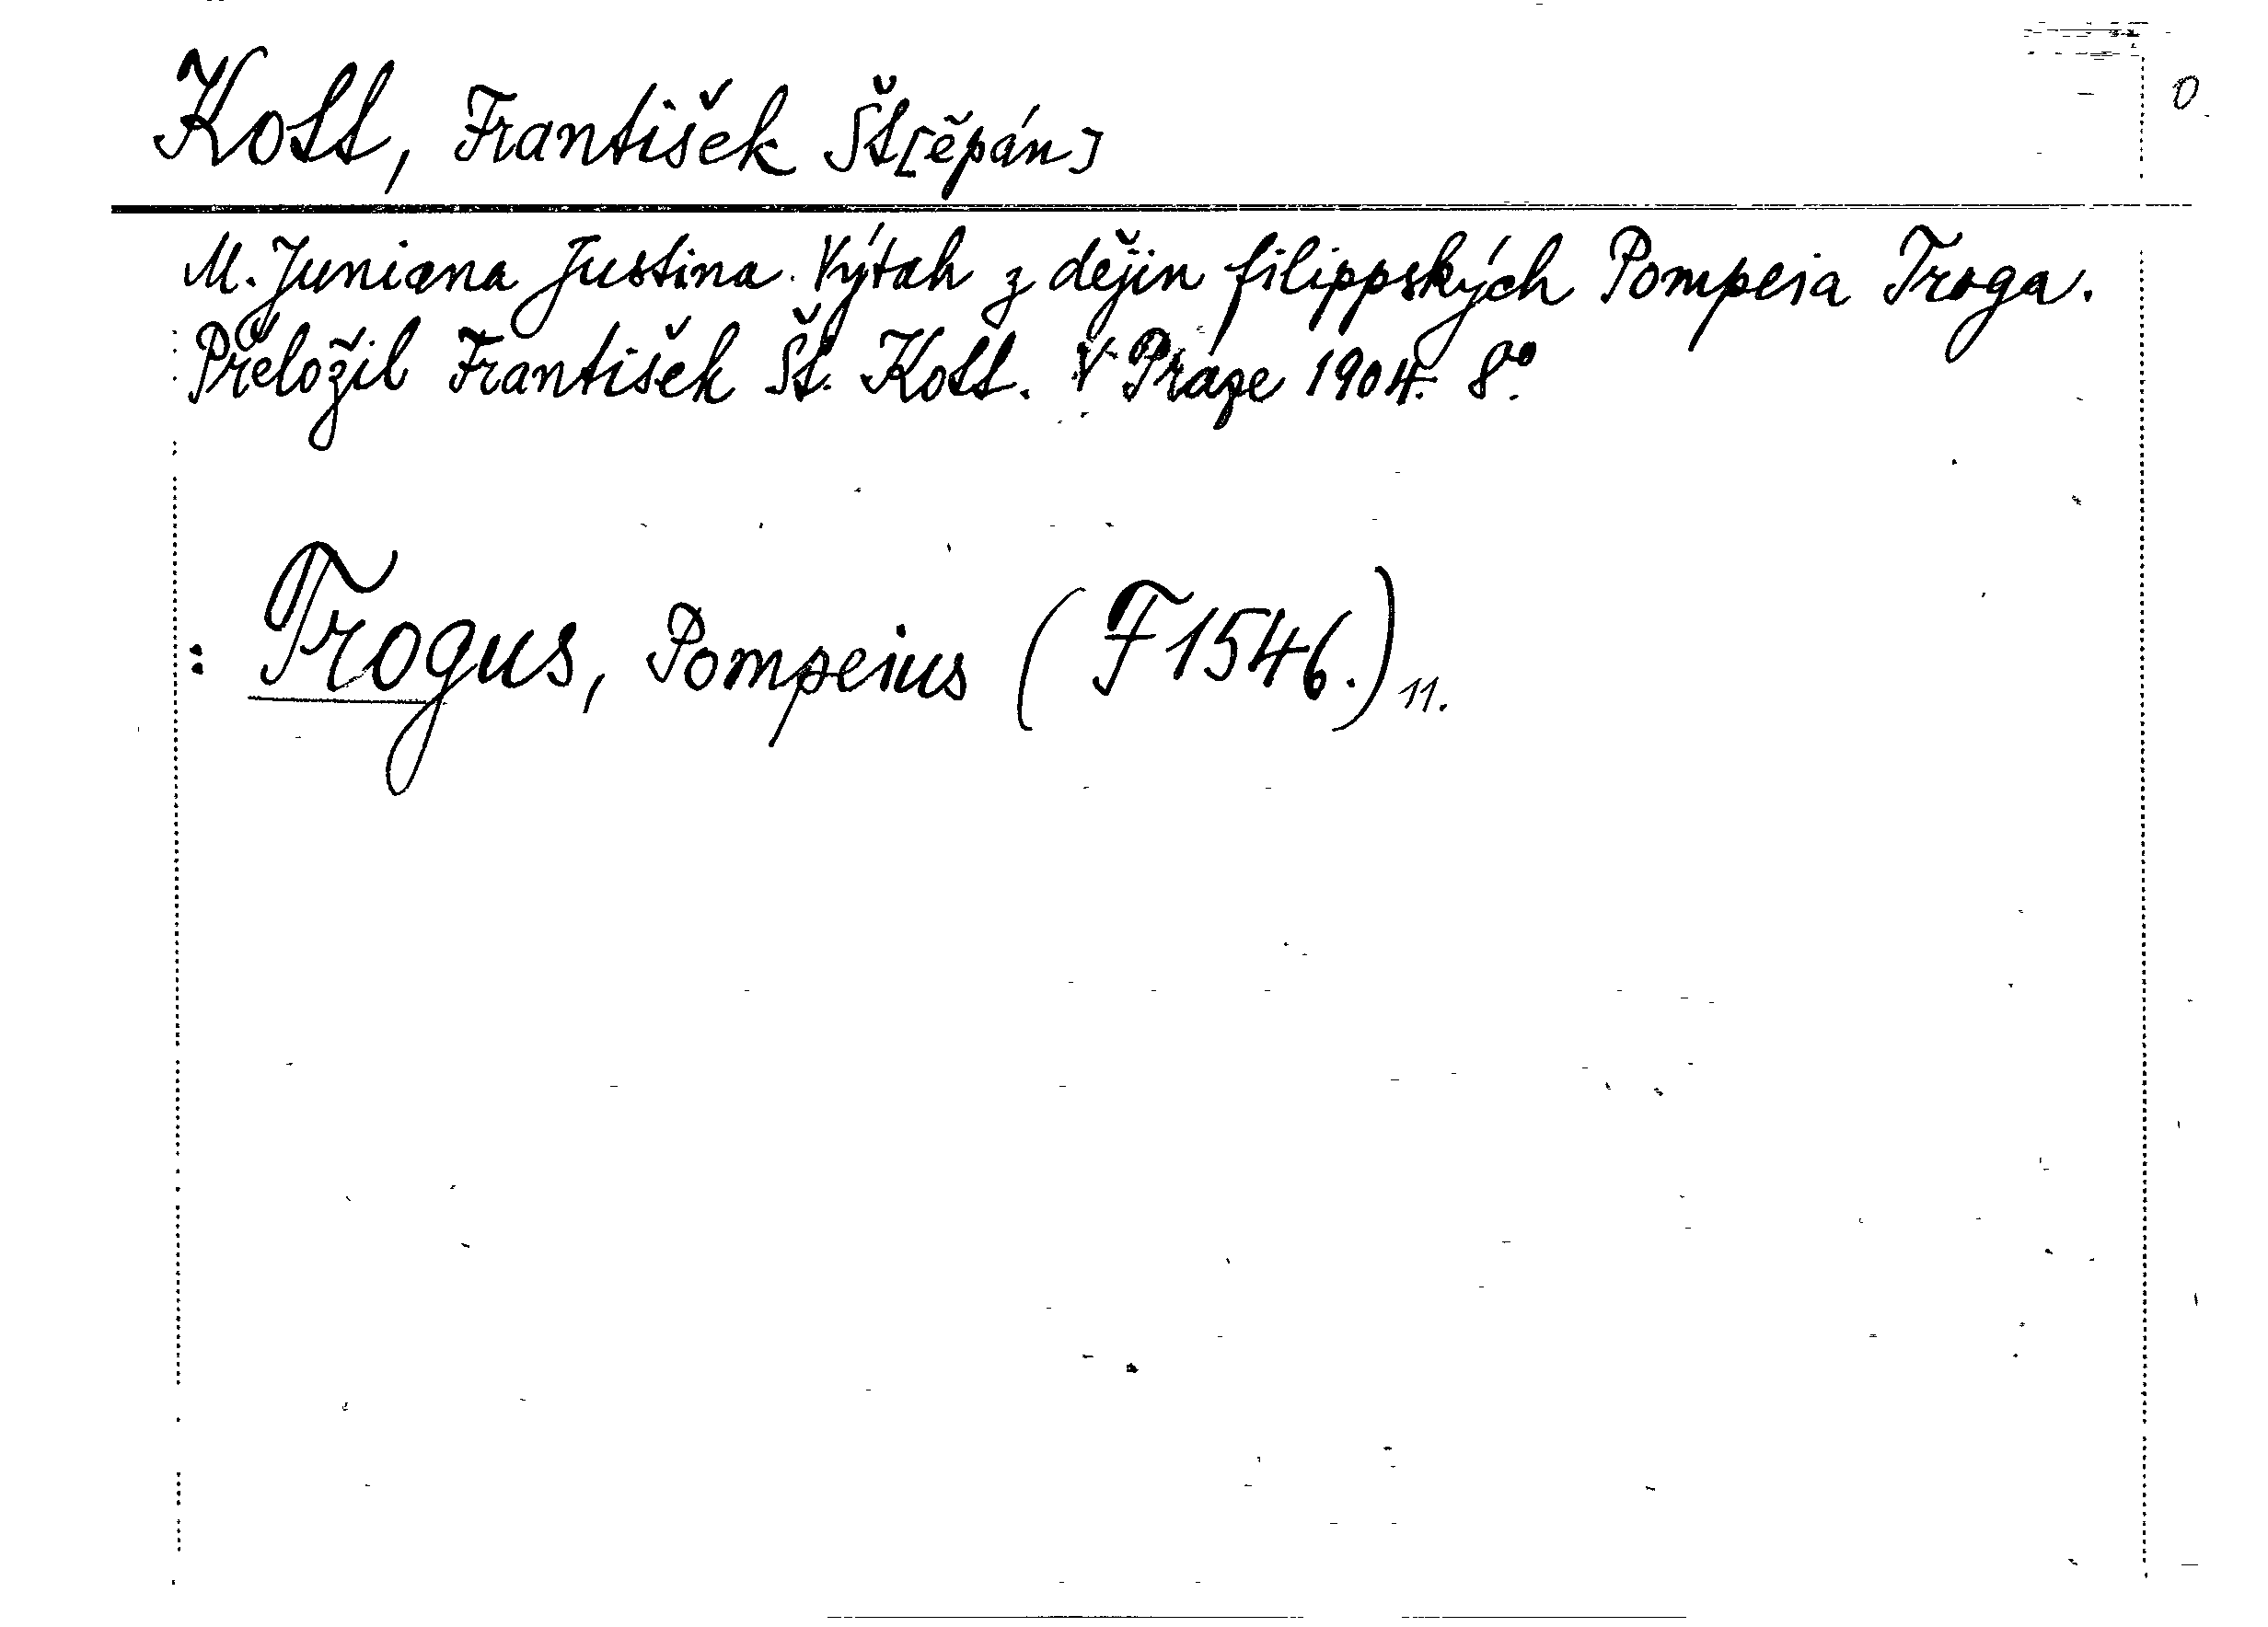 Kott, František Št[ěpán]
0
M. Juniana Justina. Výtah z dějin filippských Pompeia Troga.
Přeložil František Št. Kott. V Praze 1904. 8º.
: Trogus, Pompeius (F 1546.) 11.